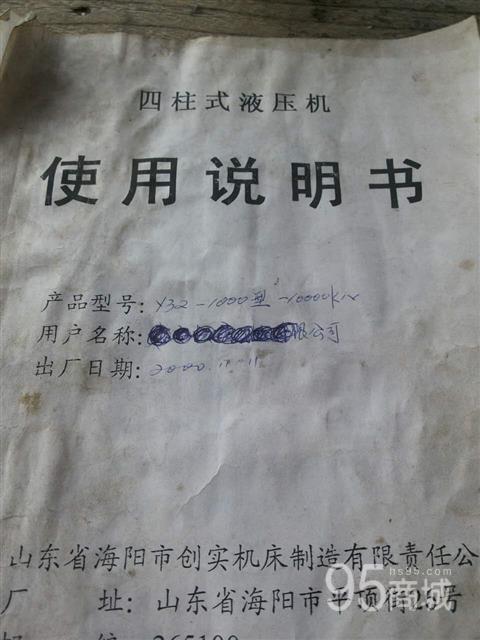 四柱式液压机
使用说明书
产品型号: Y32-1000型-10000KN
用户名称: 限公司
出厂日期: 2000.11.11
山东省海阳市创实机床制造有限责任公
厂 址: 山东省海阳市平顶街25号
邮 编 265100
95商城
hs95.com